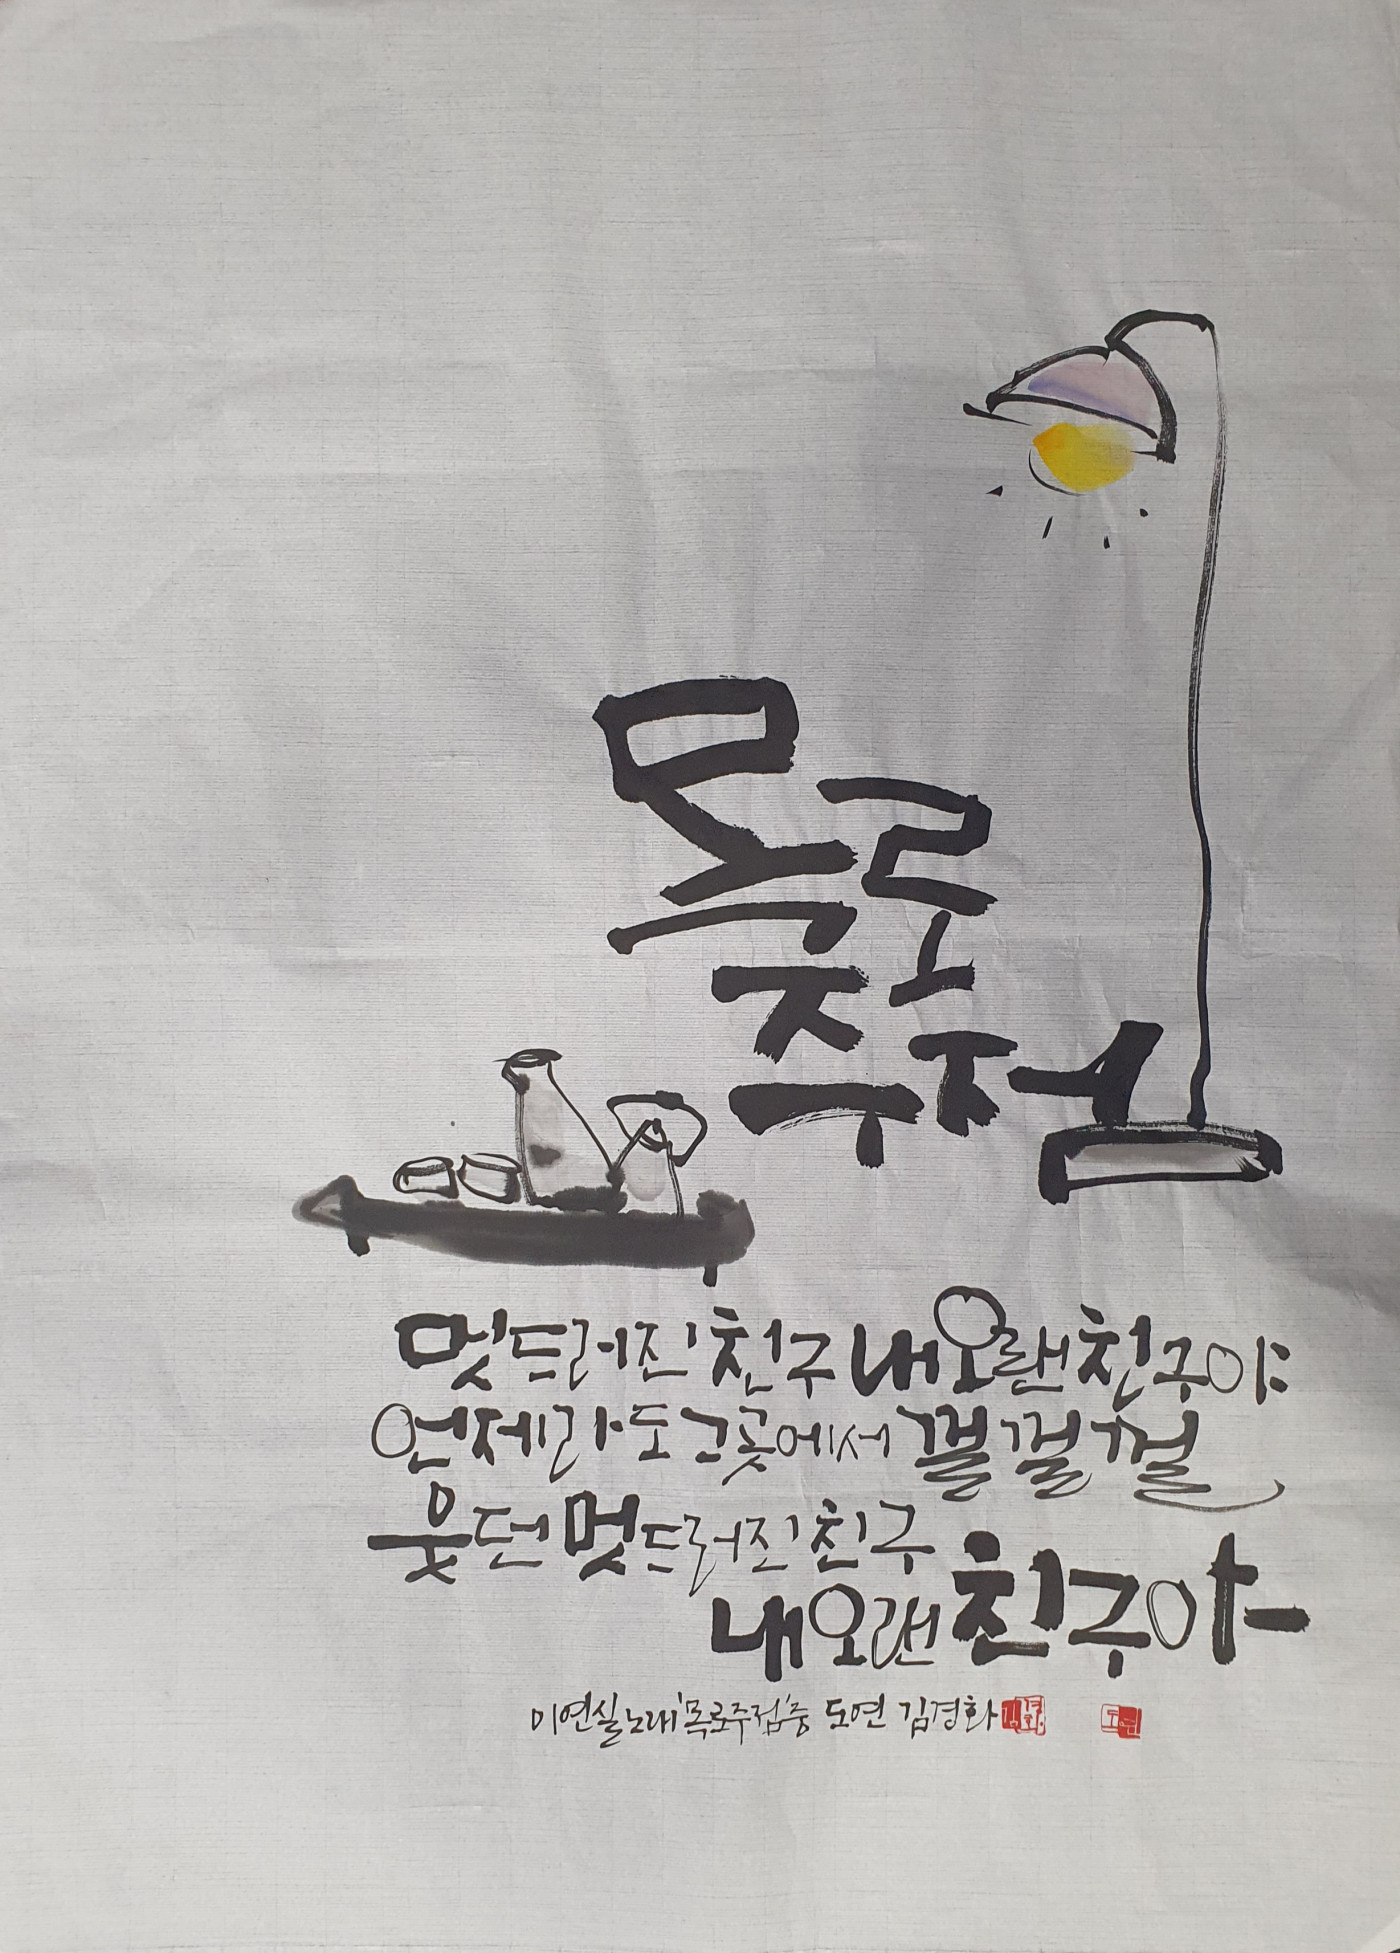 목로
주점
멋드러진 친구 내 오랜 친구야
언제라도 그곳에서 껄껄껄
웃던 멋드러진 친구
내 오랜 친구야
이연실 노래 '목로주점' 중 도연 김경화 김경화 도연